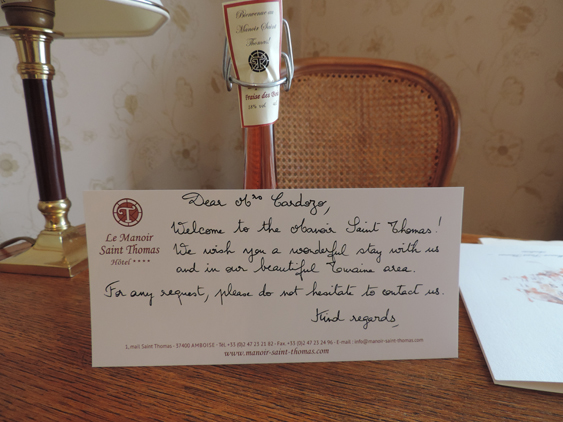 Bienvenue au
Manoir Saint
Thomas
Fraise des Bois
Dear Mrs Cardozo,
Welcome to the Manoir Saint Thomas!
We wish you a wonderful stay with us
and in our beautiful Touraine area.
For any request, please do not hesitate to contact us.
Kind regards,
T
Le Manoir
Saint Thomas
Hôtel ****
1, mail Saint Thomas - 37400 AMBOISE - Tél. +33 (0)2 47 23 21 82 - Fax. +33 (0)2 47 23 24 96 - E-mail : info@manoir-saint-thomas.com
www.manoir-saint-thomas.com